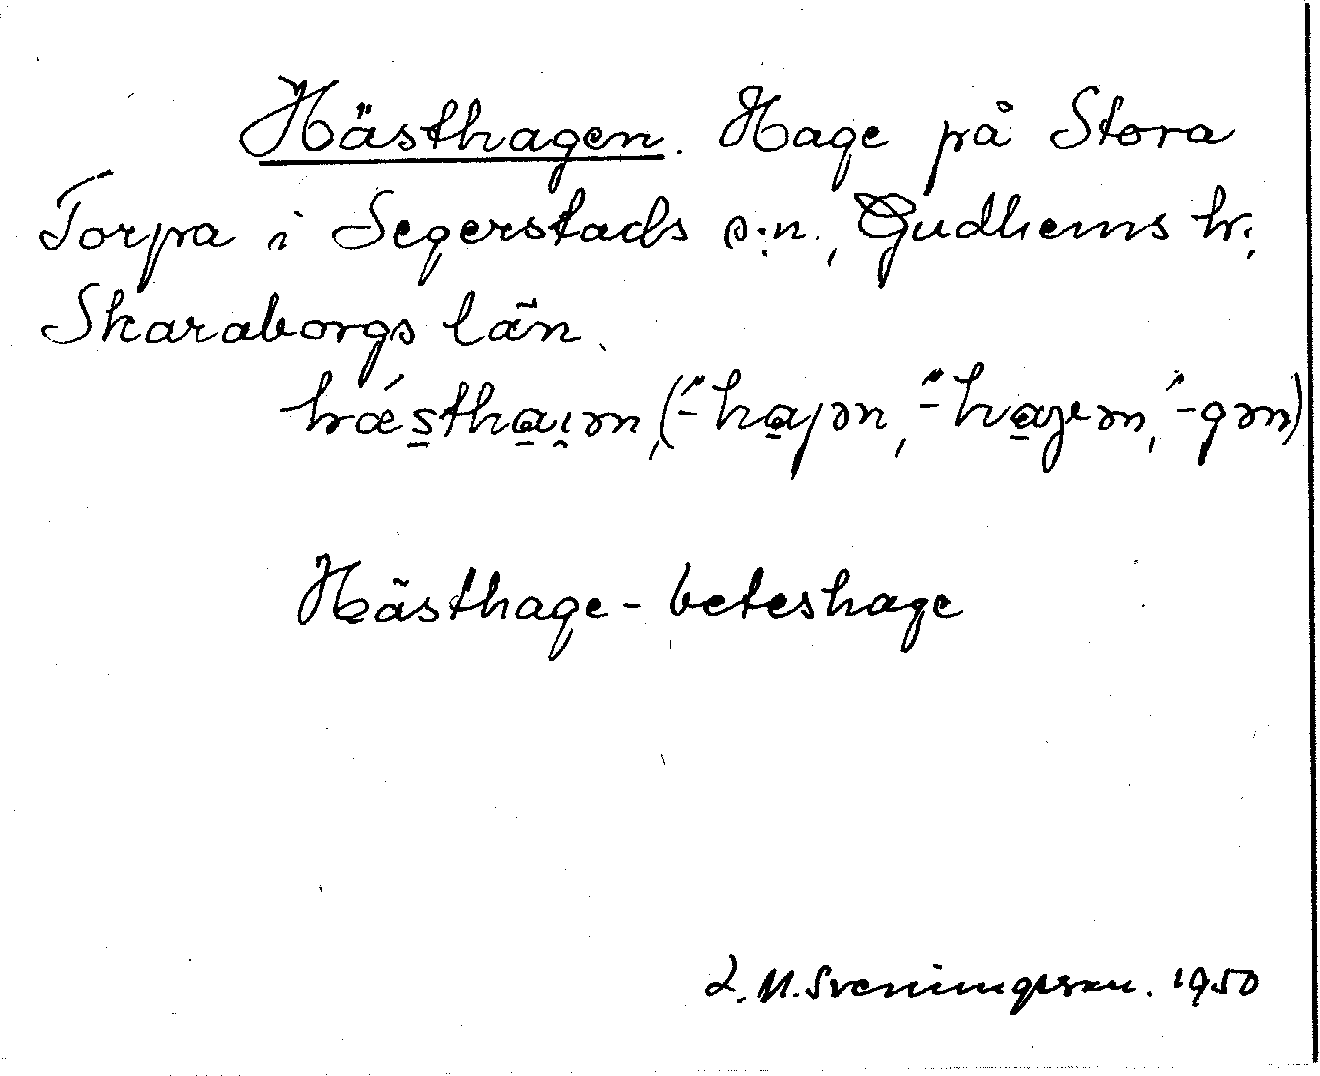 Hästhagen. Hage på Stora
Torpa i Segerstads s:n, Gudhems hr.
Skaraborgs län.
hǽstha̱i̯ən, (´̋-ha̱jən, ´̋-ha̱gən, ´-gən)
Hästhage - beteshage
L. M. Sveningsson. 1950